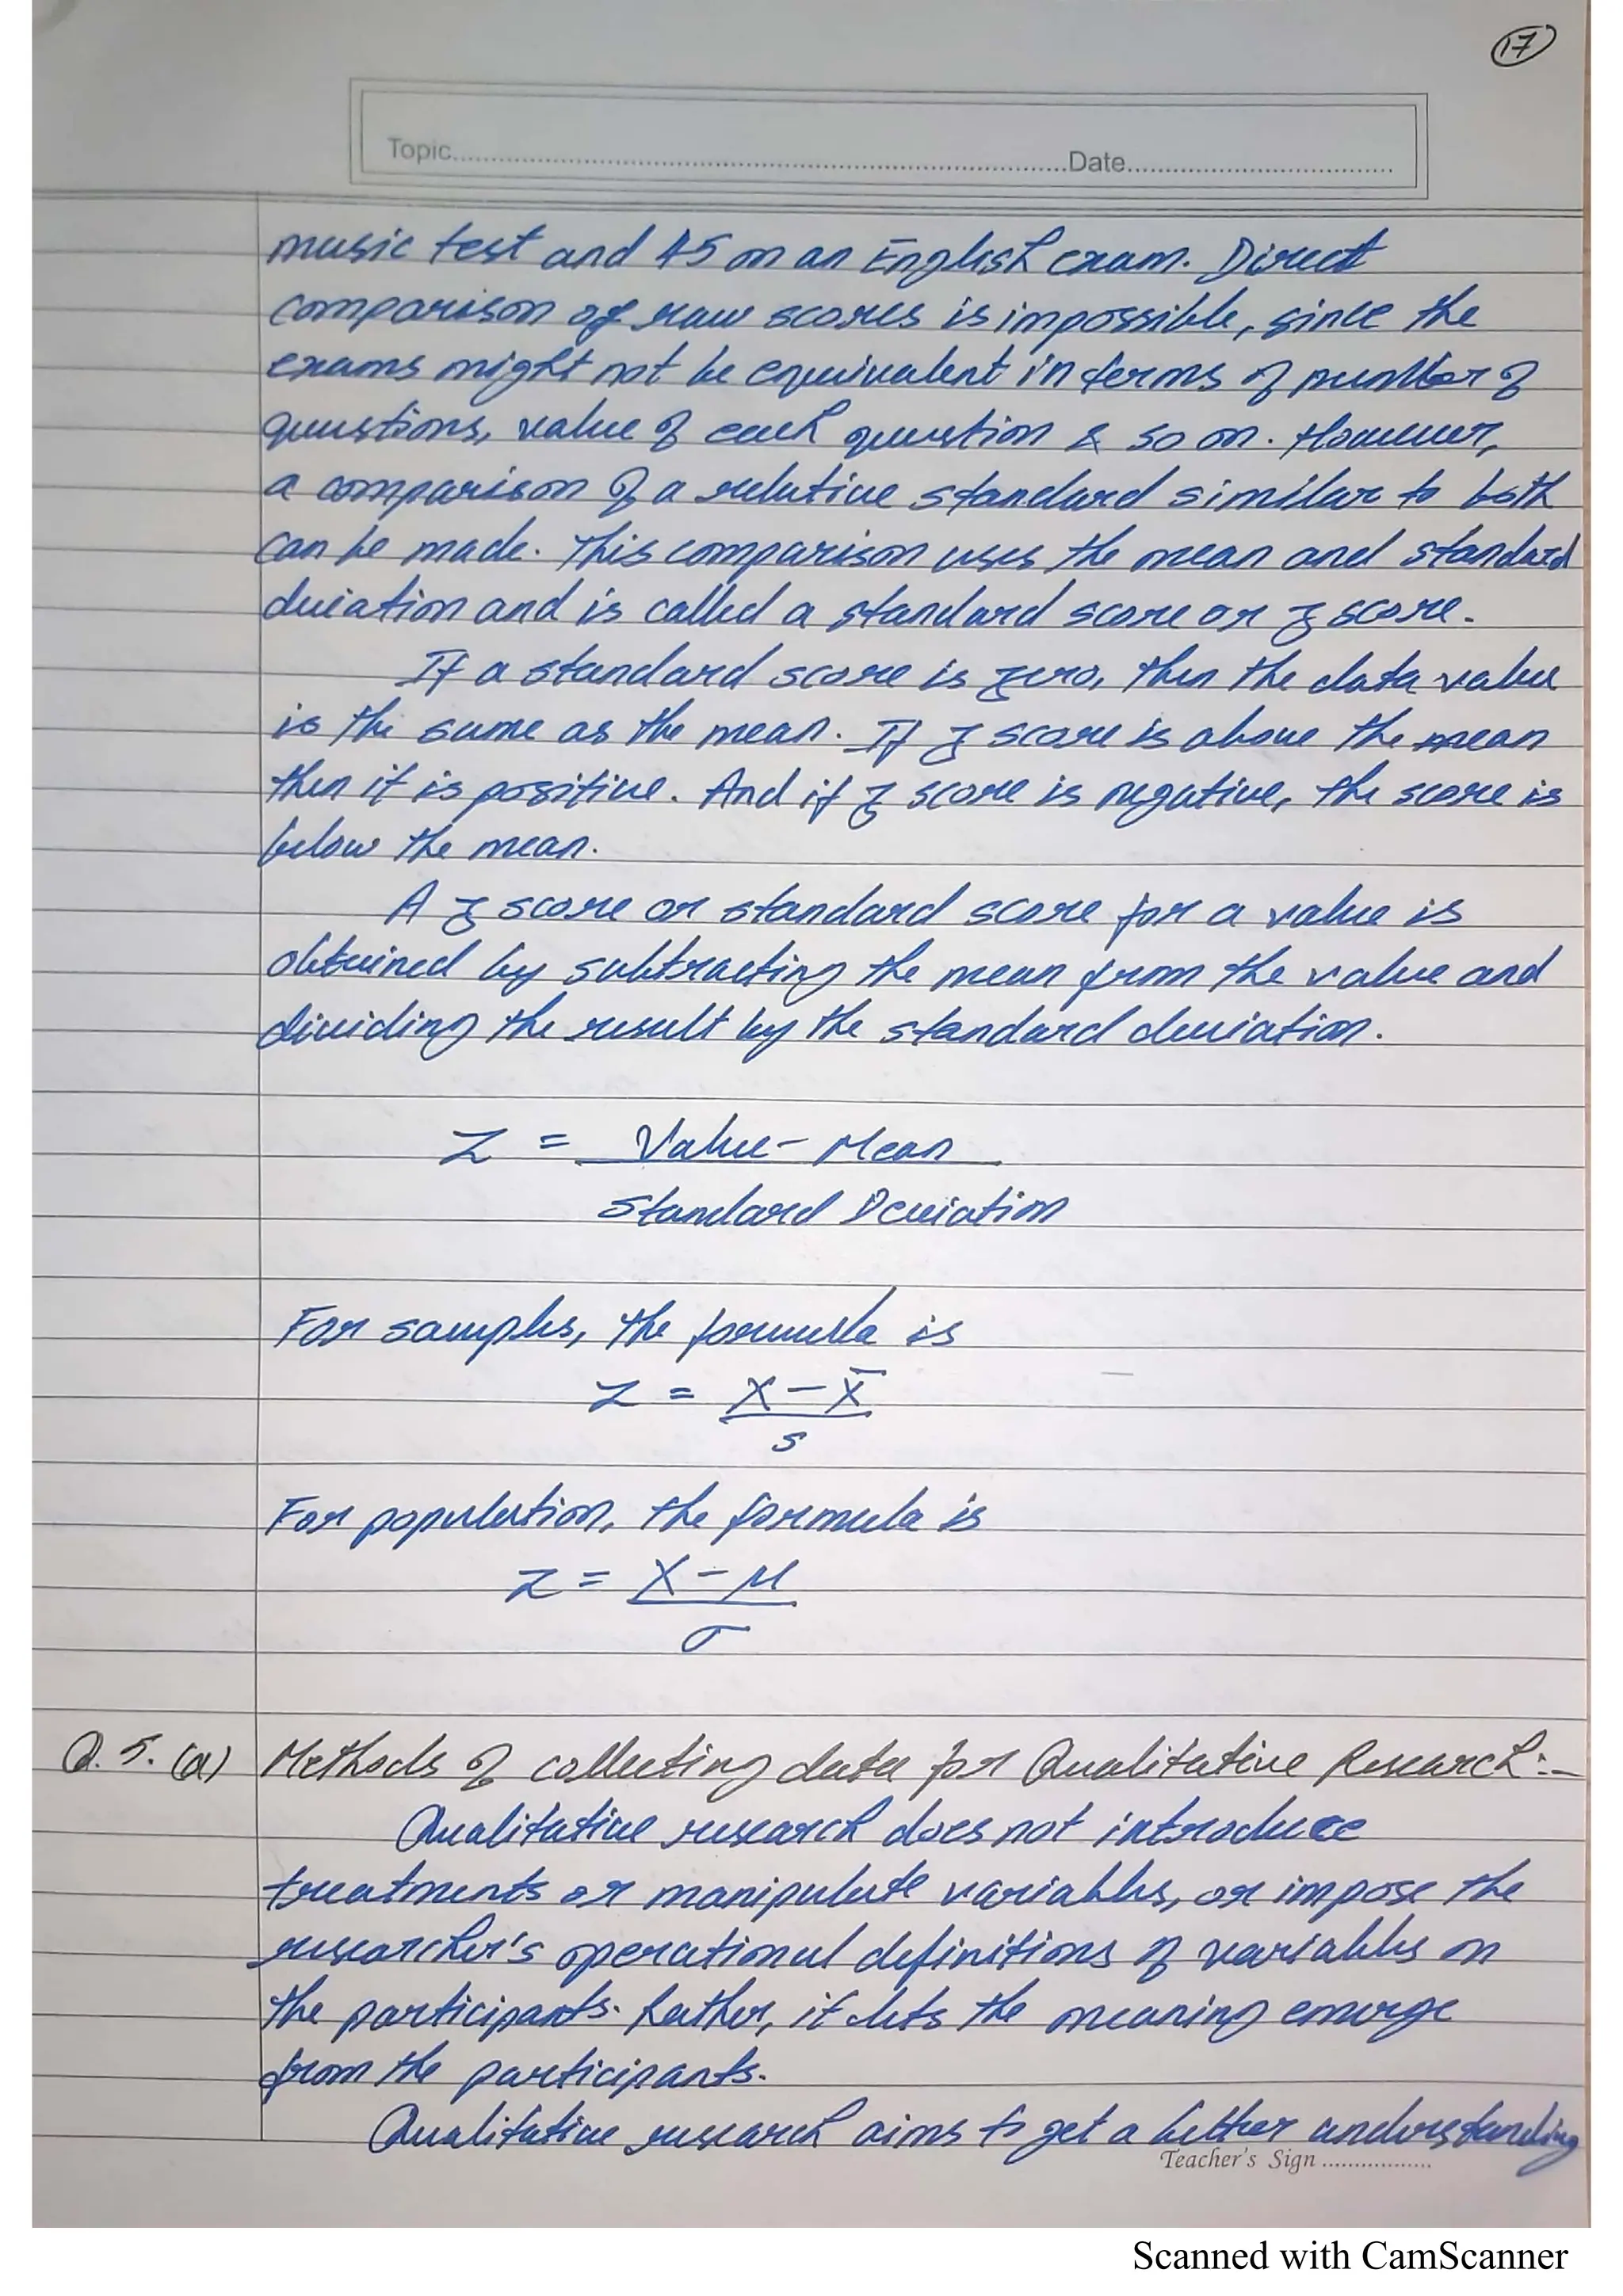 17
Topic..........Date..........
music test and 45 on an English exam. Direct
comparison of raw scores is impossible, since the
exams might not be equivalent in terms of number of
questions, value of each question & so on. However,
a comparison of a relative standard similar to both
can be made. This comparison uses the mean and standard
deviation and is called a standard score or z score.
If a standard score is zero, then the data value
is the same as the mean. If z score is above the mean
then it is positive. And if z score is negative, the score is
below the mean.
A z score or standard score for a value is
obtained by subtracting the mean from the value and
dividing the result by the standard deviation.
Z = Value - Mean
Standard Deviation
For samples, the formula is
Z = X - X̄
s
For population, the formula is
Z = X - μ
σ
Q. 5. (a) Methods of collecting data for Qualitative Research :-
Qualitative research does not introduce
treatments or manipulate variables, or impose the
researcher's operational definitions of variables on
the participants. Rather, it lets the meaning emerge
from the participants.
Qualitative research aims to get a better understanding
Teacher's Sign ..........
Scanned with CamScanner